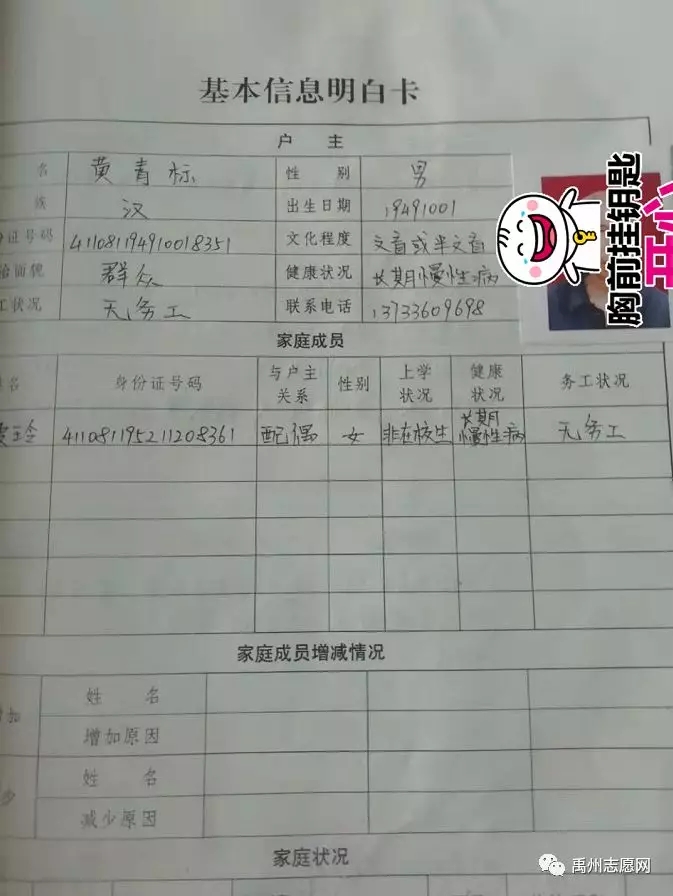 基本信息明白卡
户 主
名 黄青标 性 别 男
族 汉 出生日期 19491001
证号码 411081194910018351 文化程度 文盲或半文盲
治面貌 群众 健康状况 长期慢性病
工状况 无务工 联系电话 13733609698
胸前挂钥匙
开心
家庭成员
名 身份证号码 与户主关系 性别 上学状况 健康状况 务工状况
411081195211208361 配偶 女 非在校生 长期慢性病 无务工
家庭成员增减情况
加 姓 名
增加原因
少 姓 名
减少原因
家庭状况
禹州志愿网